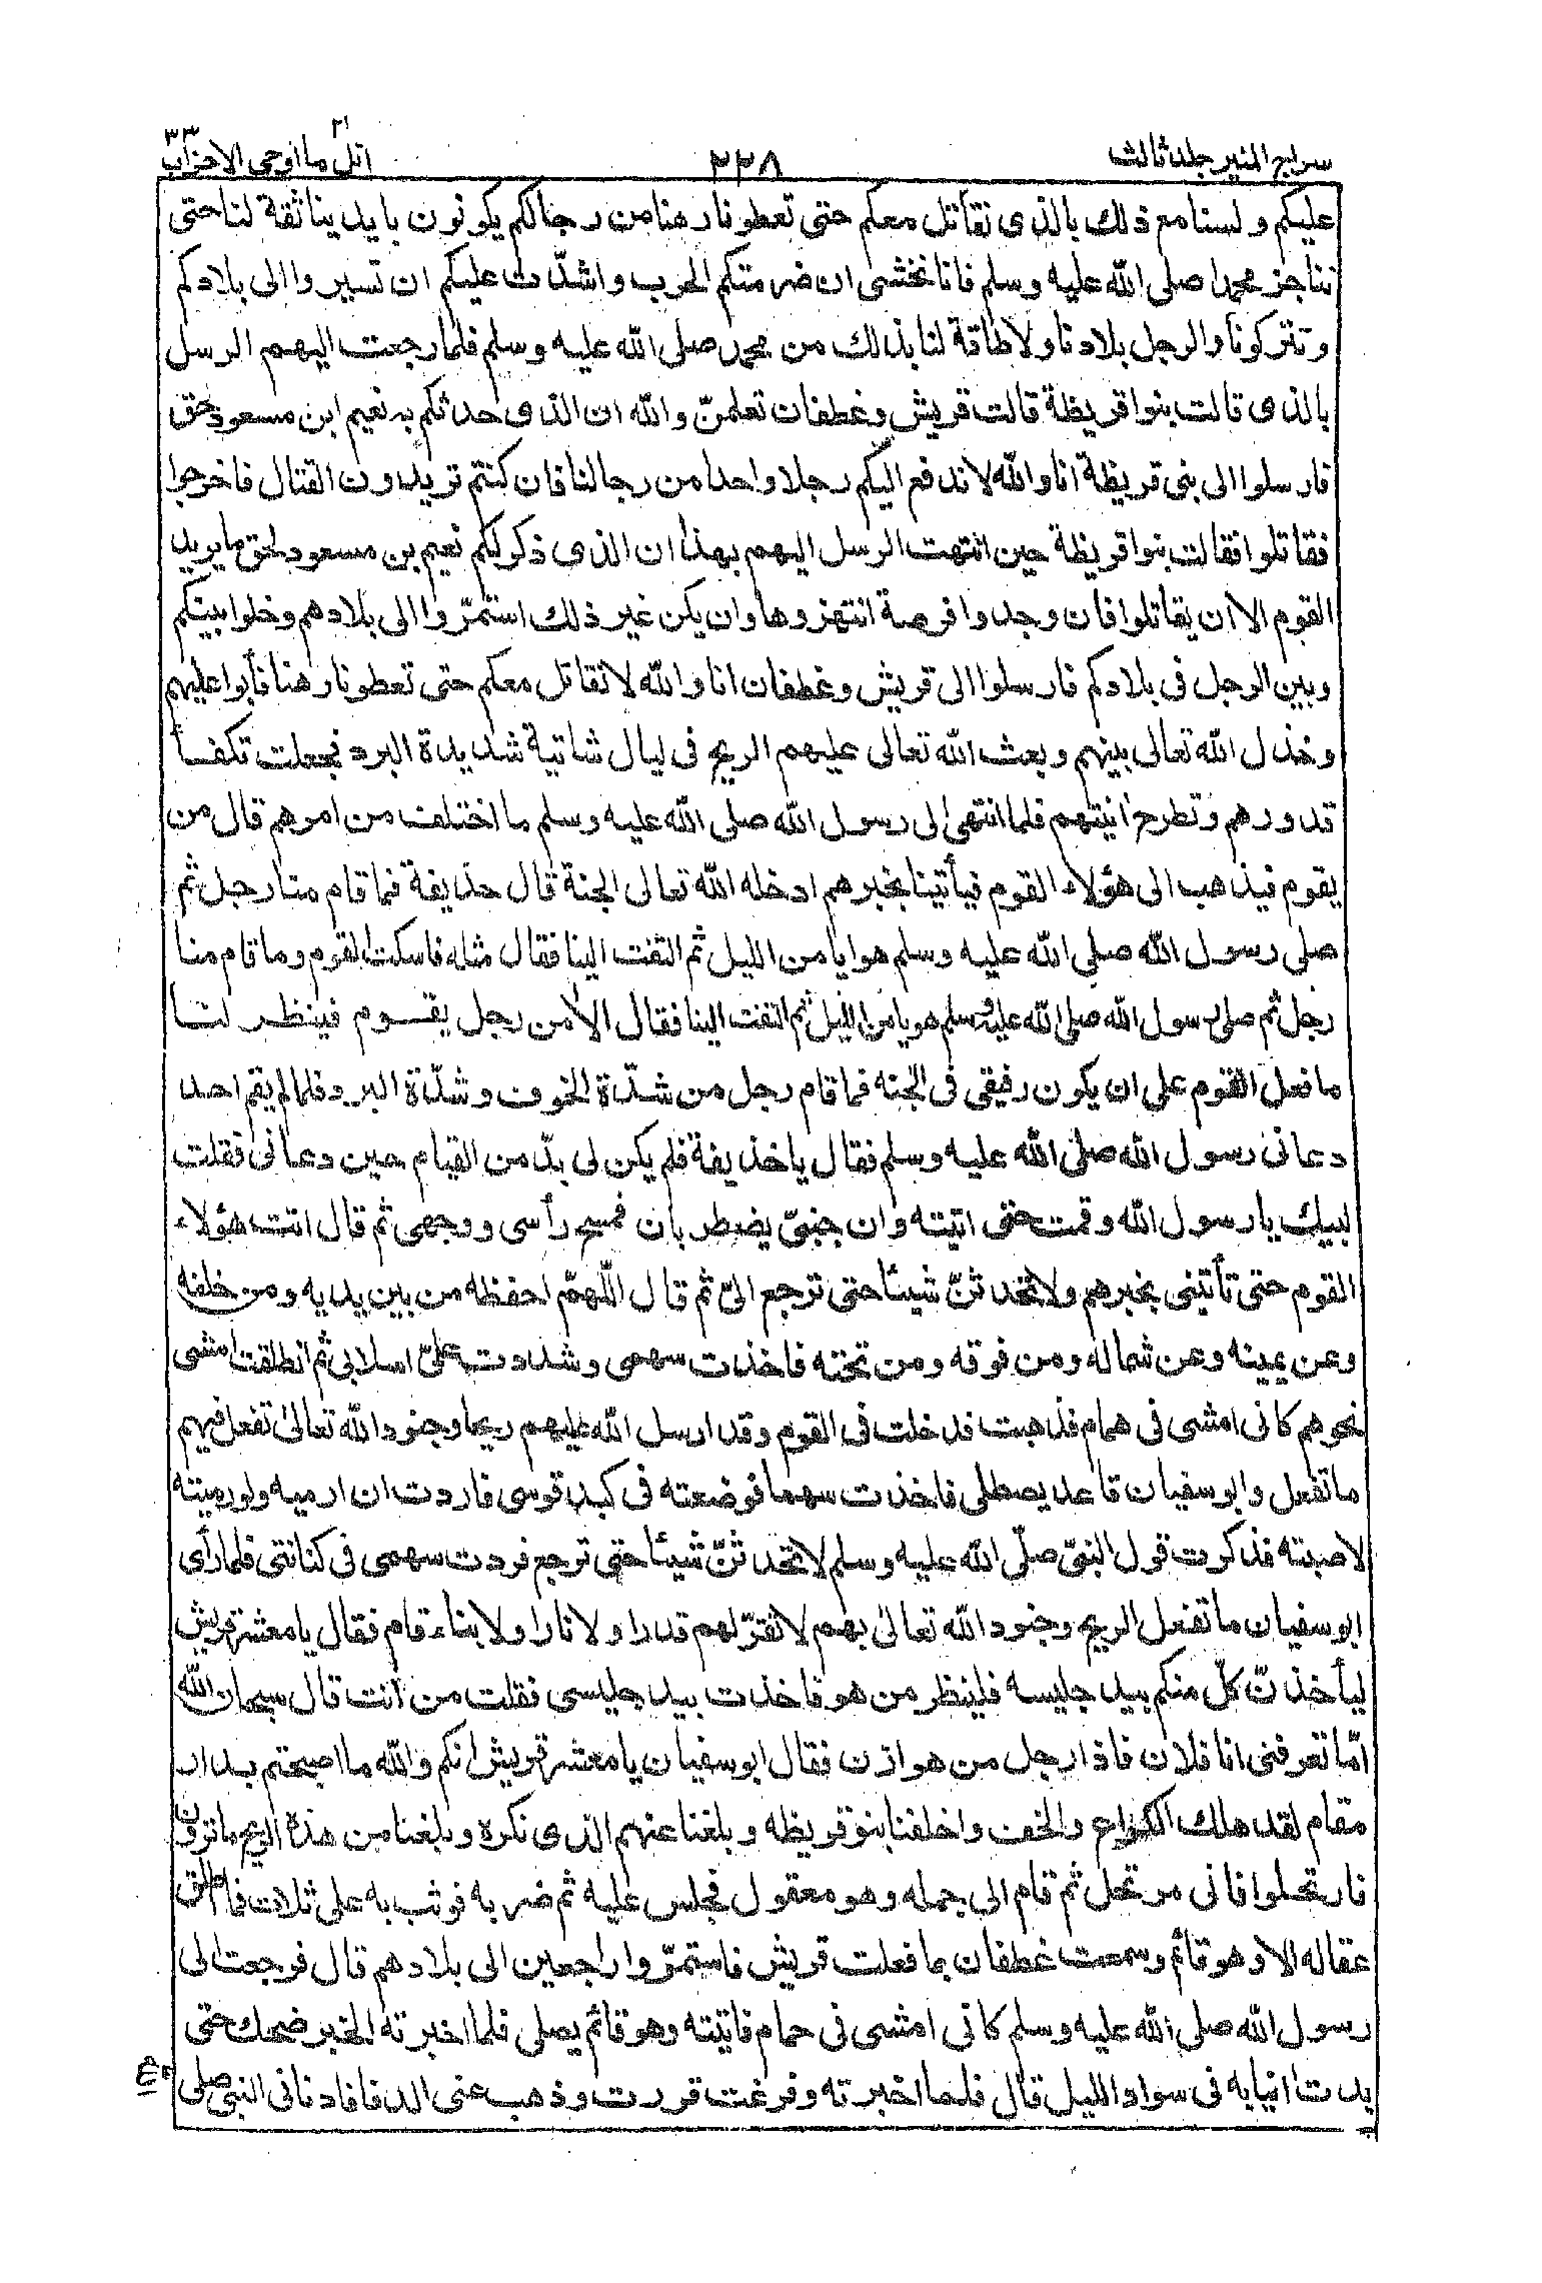 سراج المنير جلد ثالث ٢٢٨ اتل ما اوحى ٢١ الاحزاب ٣٣
عليكم ولسنا مع ذلك بالذى نقاتل معكم حتى تعطونا رهنا من رجالكم يكونون بايدينا ثقة لنا حتى
نناجز محمدا صلى الله عليه وسلم فانا نخشى ان ضرمتكم الحرب واشتدت عليكم ان تسيروا الى بلادكم
وتتركونا والرجل بلادنا ولا طاقة لنا بذلك من محمد صلى الله عليه وسلم فلما رجعت اليهم الرسل
بالذى قالت بنوا قريظة قالت قريش وغطفان تعلمنّ والله ان الذى حدثكم به نعيم ابن مسعود حق
فارسلوا الى بنى قريظة انا والله لا ندفع اليكم رجلا واحدا من رجالنا فان كنتم تريدون القتال فاخرجوا
فقاتلوا فقالت بنوا قريظة حين انتهت الرسل اليهم بهذا ان الذى ذكر لكم نعيم بن مسعود لحق ما يريد
القوم الا ان يقاتلوا فان وجدوا فرصة انتهزوها وان يكن غير ذلك استمرّوا الى بلادهم وخلوا بينكم
وبين الرجل فى بلادكم فارسلوا الى قريش وغطفان انا والله لا نقاتل معكم حتى تعطونا رهنا فأبوا عليهم
وخذل الله تعالى بينهم وبعث الله تعالى عليهم الريح فى ليال شاتية شديدة البرد فجعلت تكفأ
قدورهم وتطرح أنيتهم فلما انتهى الى رسول الله صلى الله عليه وسلم ما اختلف من امرهم قال من
يقوم فيذهب الى هؤلاء القوم فيأتينا بخبرهم ادخله الله تعالى الجنة قال حذيفة فما قام منا رجل ثم
صلى رسول الله صلى الله عليه وسلم هويا من الليل ثم التفت الينا فقال مثله فاسكت القوم وما قام منا
رجل ثم صلى رسول الله صلى الله عليه وسلم هويا من الليل ثم التفت الينا فقال الا من رجل يقوم فينظر لنا
ما فعل القوم على ان يكون رفيقى فى الجنه فما قام رجل من شدّة الخوف وشدّة البرد فلما لم يقم احد
دعانى رسول الله صلى الله عليه وسلم فقال يا حذيفة فلم يكن لى بدّ من القيام حين دعانى فقلت
لبيك يا رسول الله وقمت حتى اتيته وان جنبىّ يضطربان فمسح رأسى ووجهى ثم قال ائت هؤلاء
القوم حتى تأتينى بخبرهم ولا تحدثنّ شيئا حتى ترجع الىّ ثم قال اللّهمّ احفظه من بين يديه ومن خلفه
وعن يمينه وعن شماله ومن فوقه ومن تحته فاخذت سهمى وشددت علىّ اسلابى ثم انطلقت امشى
نحوهم كانى امشى فى همام فذهبت فدخلت فى القوم وقد ارسل الله عليهم ريحا وجنود الله تعالىٰ تفعل فيهم
ما تفعل وابو سفيان قاعد يصطلى فاخذت سهما فوضعته فى كبد قوسى فاردت ان ارميه ولو رميته
لاصبته فذكرت قول النبىّ صلّى الله عليه وسلم لا تحدثنّ شيئا حتى ترجع فرددت سهمى فى كنانتى فلما رأى
ابو سفيان ما تفعل الريح وجنود الله تعالىٰ بهم لا تقرّ لهم قدرا ولا نارا ولا بناء قام فقال يا معشر قريش
ليأخذنّ كلّ منكم بيد جليسه فلينظر من هو فاخذت بيد جليسى فقلت من أنت قال سبحان الله
أمّا تعرفنى انا فلان فاذا رجل من هوازن فقال ابو سفيان يا معشر قريش انكم والله ما اصبحتم بدار
مقام لقد هلك الكراع والخف واخلفنا بنو قريظه وبلغنا عنهم الذى نكره وبلغنا من هذه الريح ما ترون
فارتحلوا فانى مرتحل ثم قام الى جمله وهو معقول فجلس عليه ثم ضربه فوثب به على ثلاث فما اطلق
عقاله الا وهو قائم وسمعت غطفان بما فعلت قريش فاستمرّوا راجعين الى بلادهم قال فرجعت الى
رسول الله صلى الله عليه وسلم كانى امشى فى حمام فاتيته وهو قائم يصلى فلما اخبرته الخبر ضحك حتى
بدت انيابه فى سواد الليل قال فلما اخبرته وفرغت قررت وذهب عنى الدفا فادنانى النبى صلى